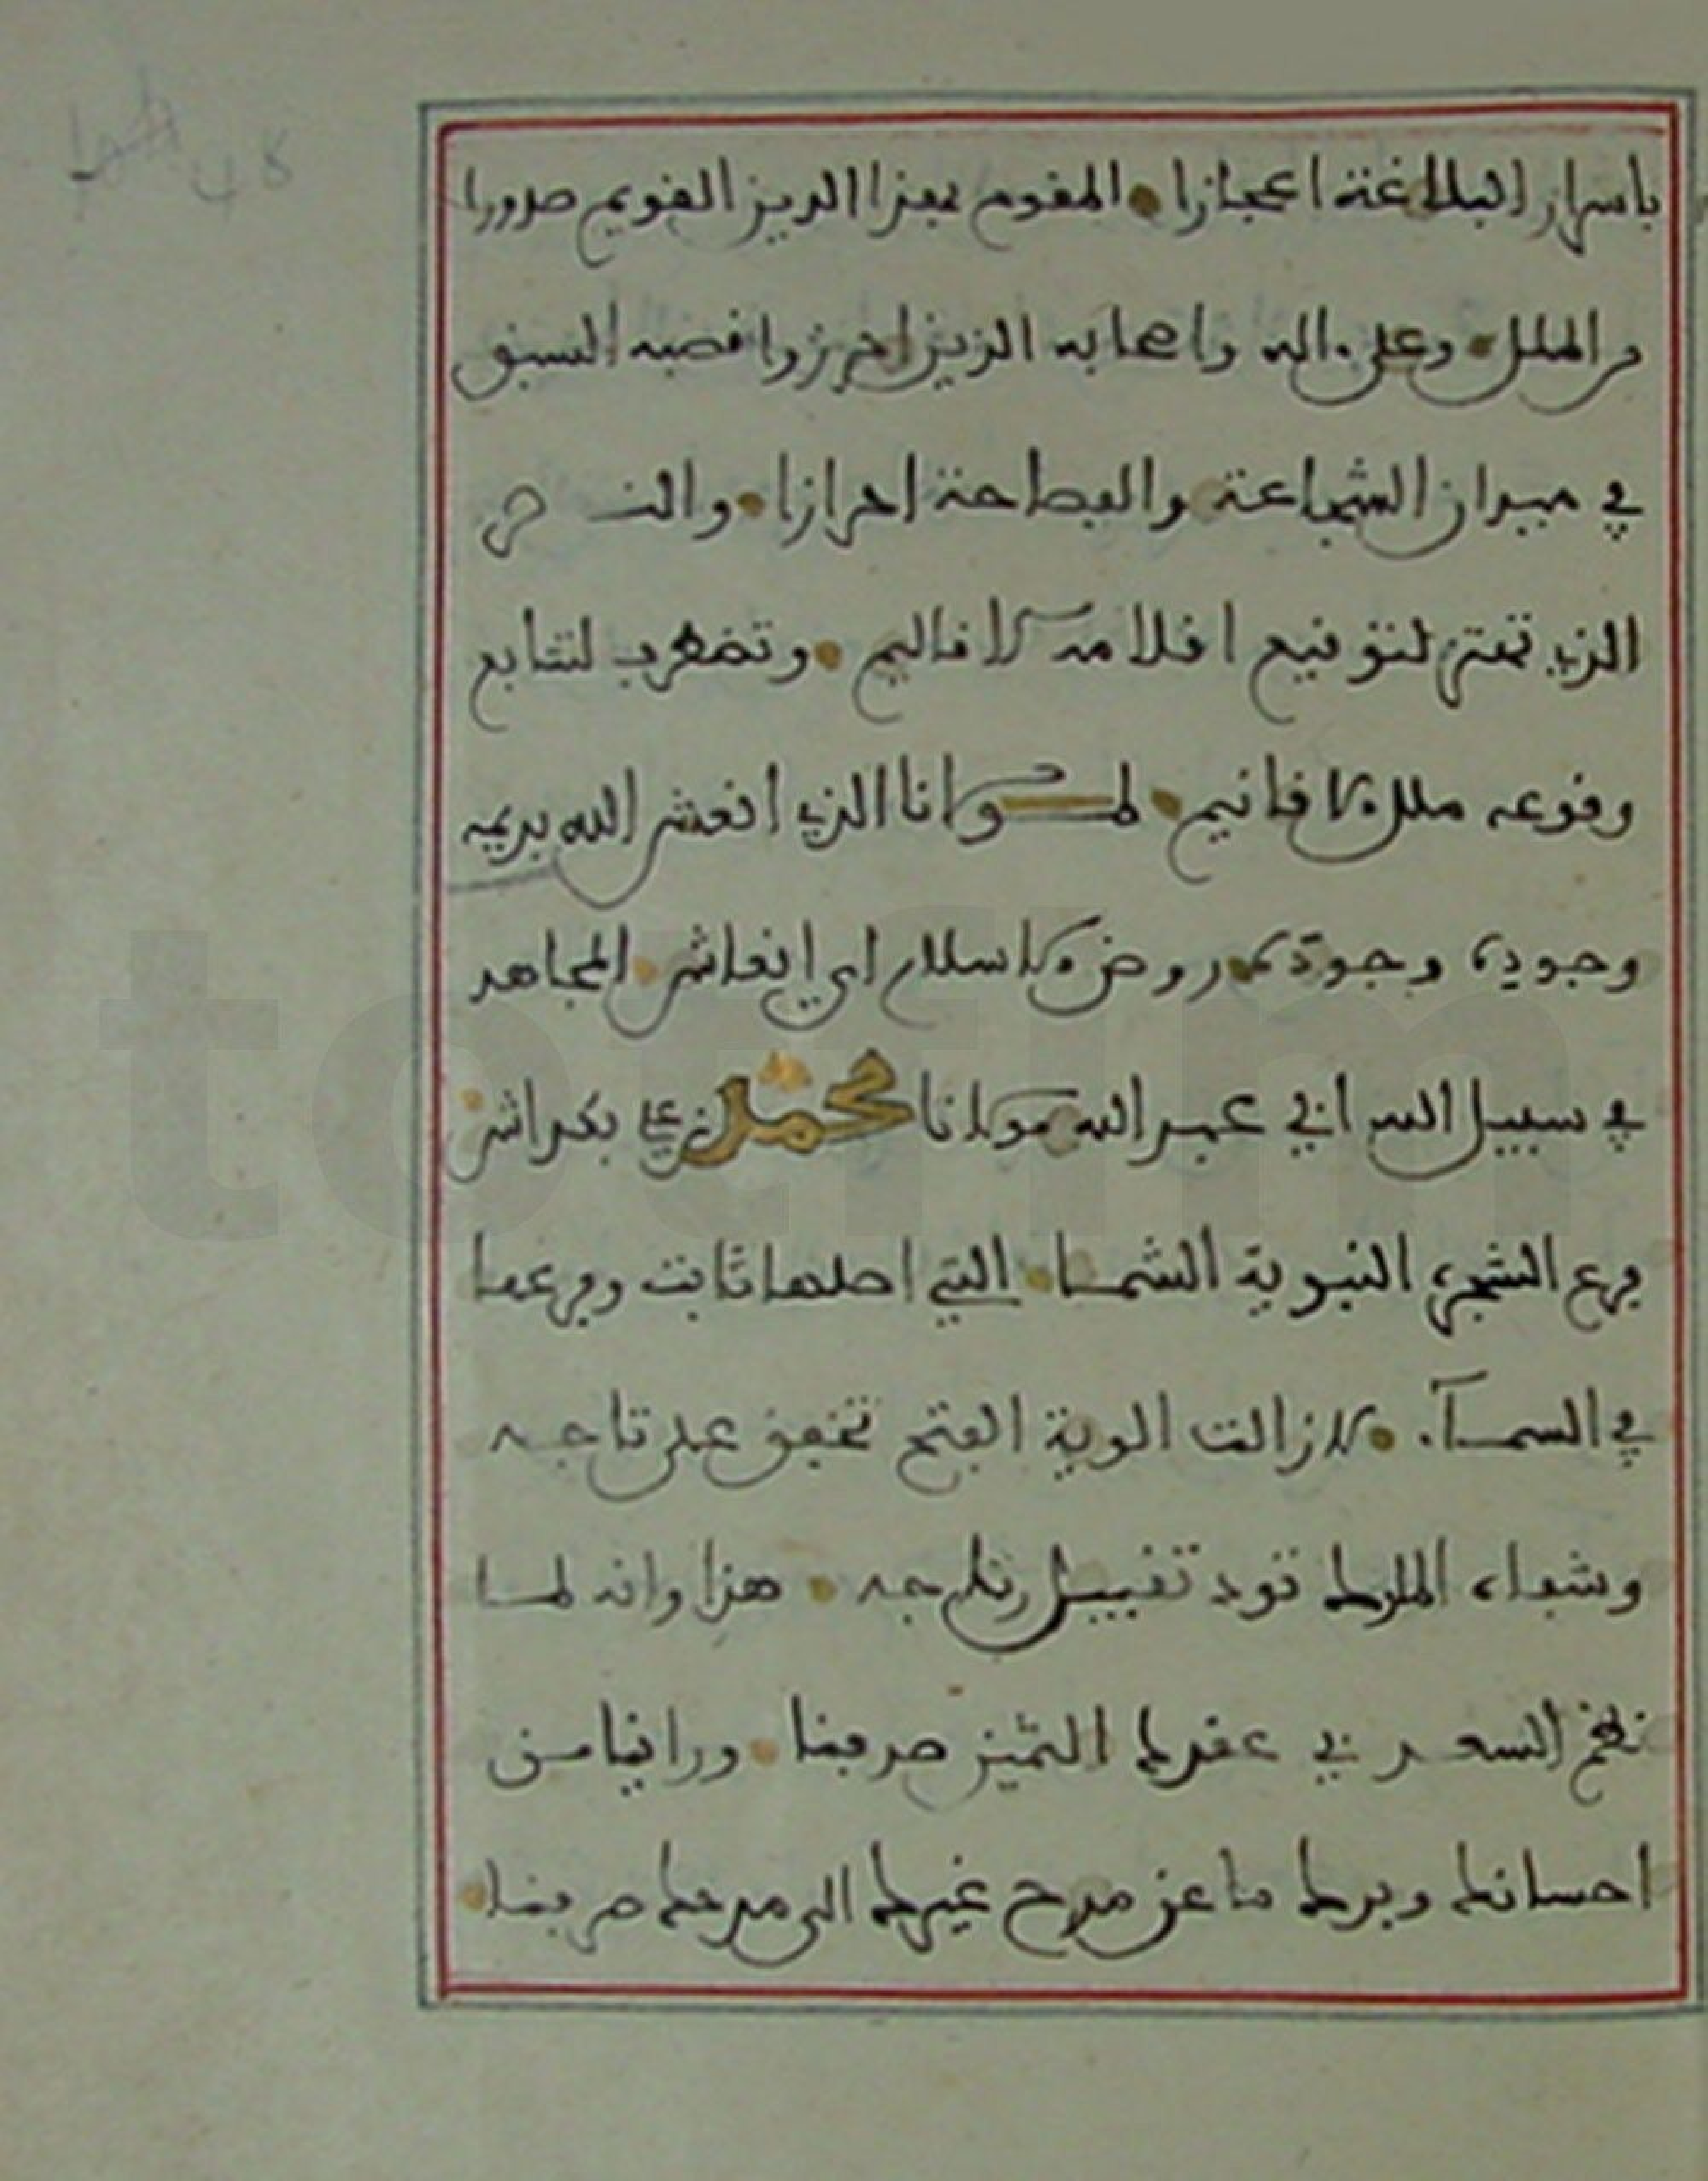 باسرار البلاغة اعجازا المقوم بهذا الدين القويم صدورا
من الملل وعلى اله واصحابه الذين احرزوا قصبه السبق
في ميدان الشجاعة والفصاحة احرازا والنصر
الذي تهتز لتوقيع اقلامه الاقاليم وتضطرب لتتابع
وقوعه ملل الاقانيم لمولانا الذي انعش الله بديمه
وجوده وجوده روض الاسلام اي انعاش المجاهد
في سبيل الله ابي عبد الله مولانا محمد بن علي بكداش
فرع الشجرة النبوية الشما التي اصلها ثابت وفرعها
في السمآء لازالت الوية الفتح تخفق على تاجه
وشفاه الملوك تود تقبيل رتاجه هذا وانه لما
نظم السعد في عقدك الثمين صدفنا ورانيا من
احسانك وبرك ما عن مدح غيرك الى مدحك صرفنا
toafim